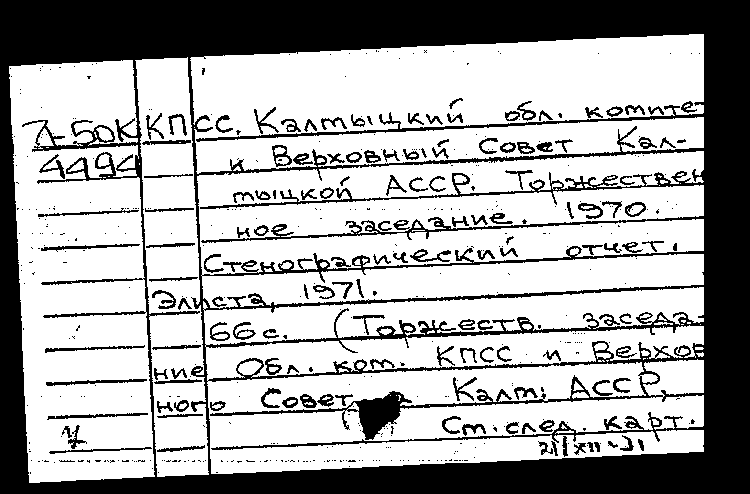 Л-50К КПСС. Калмыцкий обл. комитет
4494 и Верховный Совет Кал-
мыцкой АССР. Торжествен
ное заседание. 1970.
Стенографический отчет.
Элиста, 1971.
66 с. (Торжеств. заседа-
ние Обл. ком. КПСС и Верхов
ного Совет Калм. АССР,
Ст. след. карт.